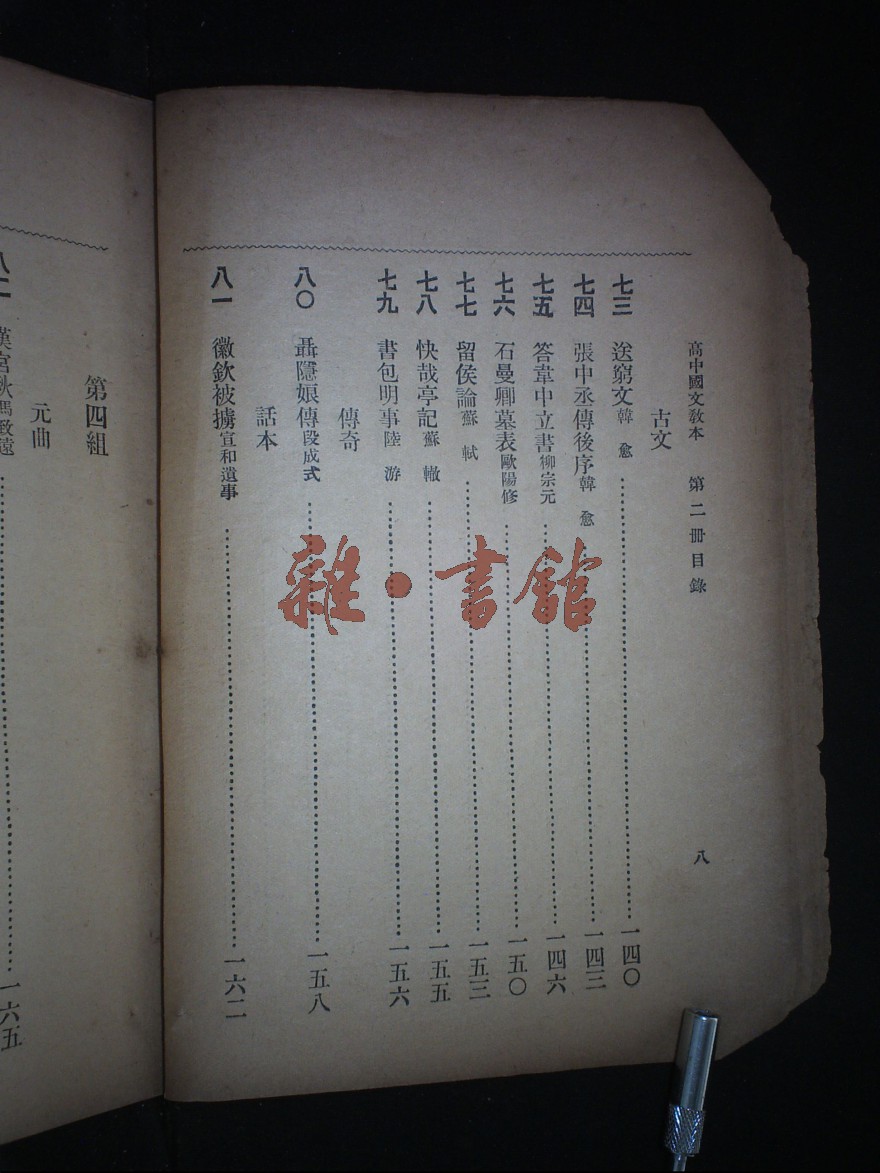 高中國文教本 第二冊目錄 八
古文
七三 送窮文 韓愈 一四〇
七四 張中丞傳後序 韓愈 一四三
七五 答韋中立書 柳宗元 一四六
七六 石曼卿墓表 歐陽修 一五〇
七七 留侯論 蘇軾 一五三
七八 快哉亭記 蘇轍 一五五
七九 書包明事 陸游 一五六
傳奇
八〇 聶隱娘傳 段成式 一五八
話本
八一 徽欽被擄 宣和遺事 一六二
第四組
元曲
八二 漢宮秋 馬致遠 一六五
雜·書館